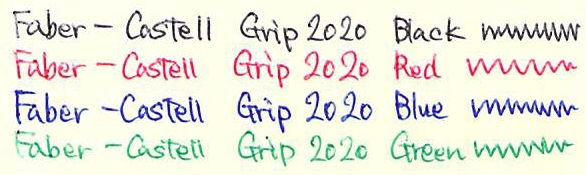 Faber - Castell Grip 2020 Black
Faber - Castell Grip 2020 Red
Faber - Castell Grip 2020 Blue
Faber - Castell Grip 2020 Green